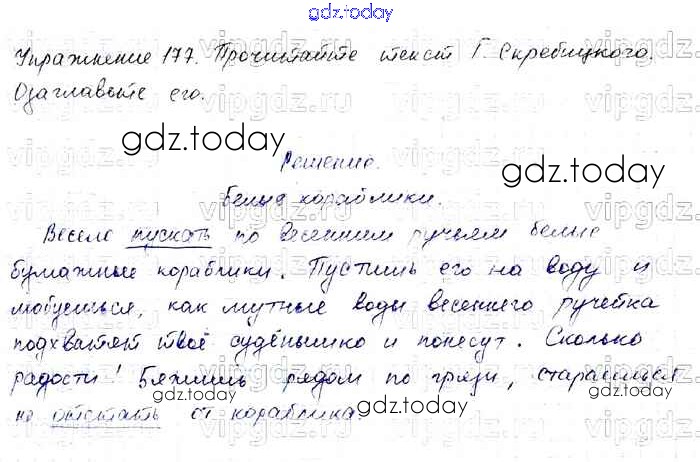 gdz.today
Упражнение 177. Прочитайте текст Г. Скребицкого.
Озаглавьте его.
gdz.today
gdz.today
Решение.
Белые кораблики.
Весело пускать по весенним ручьям белые
бумажные кораблики. Пустишь его на воду и
любуешься, как мутные воды весеннего ручейка
подхватят твоё судёнышко и понесут. Сколько
радости! Бежишь рядом по грязи, стараешься
не отстать от кораблика.
gdz.today
gdz.today